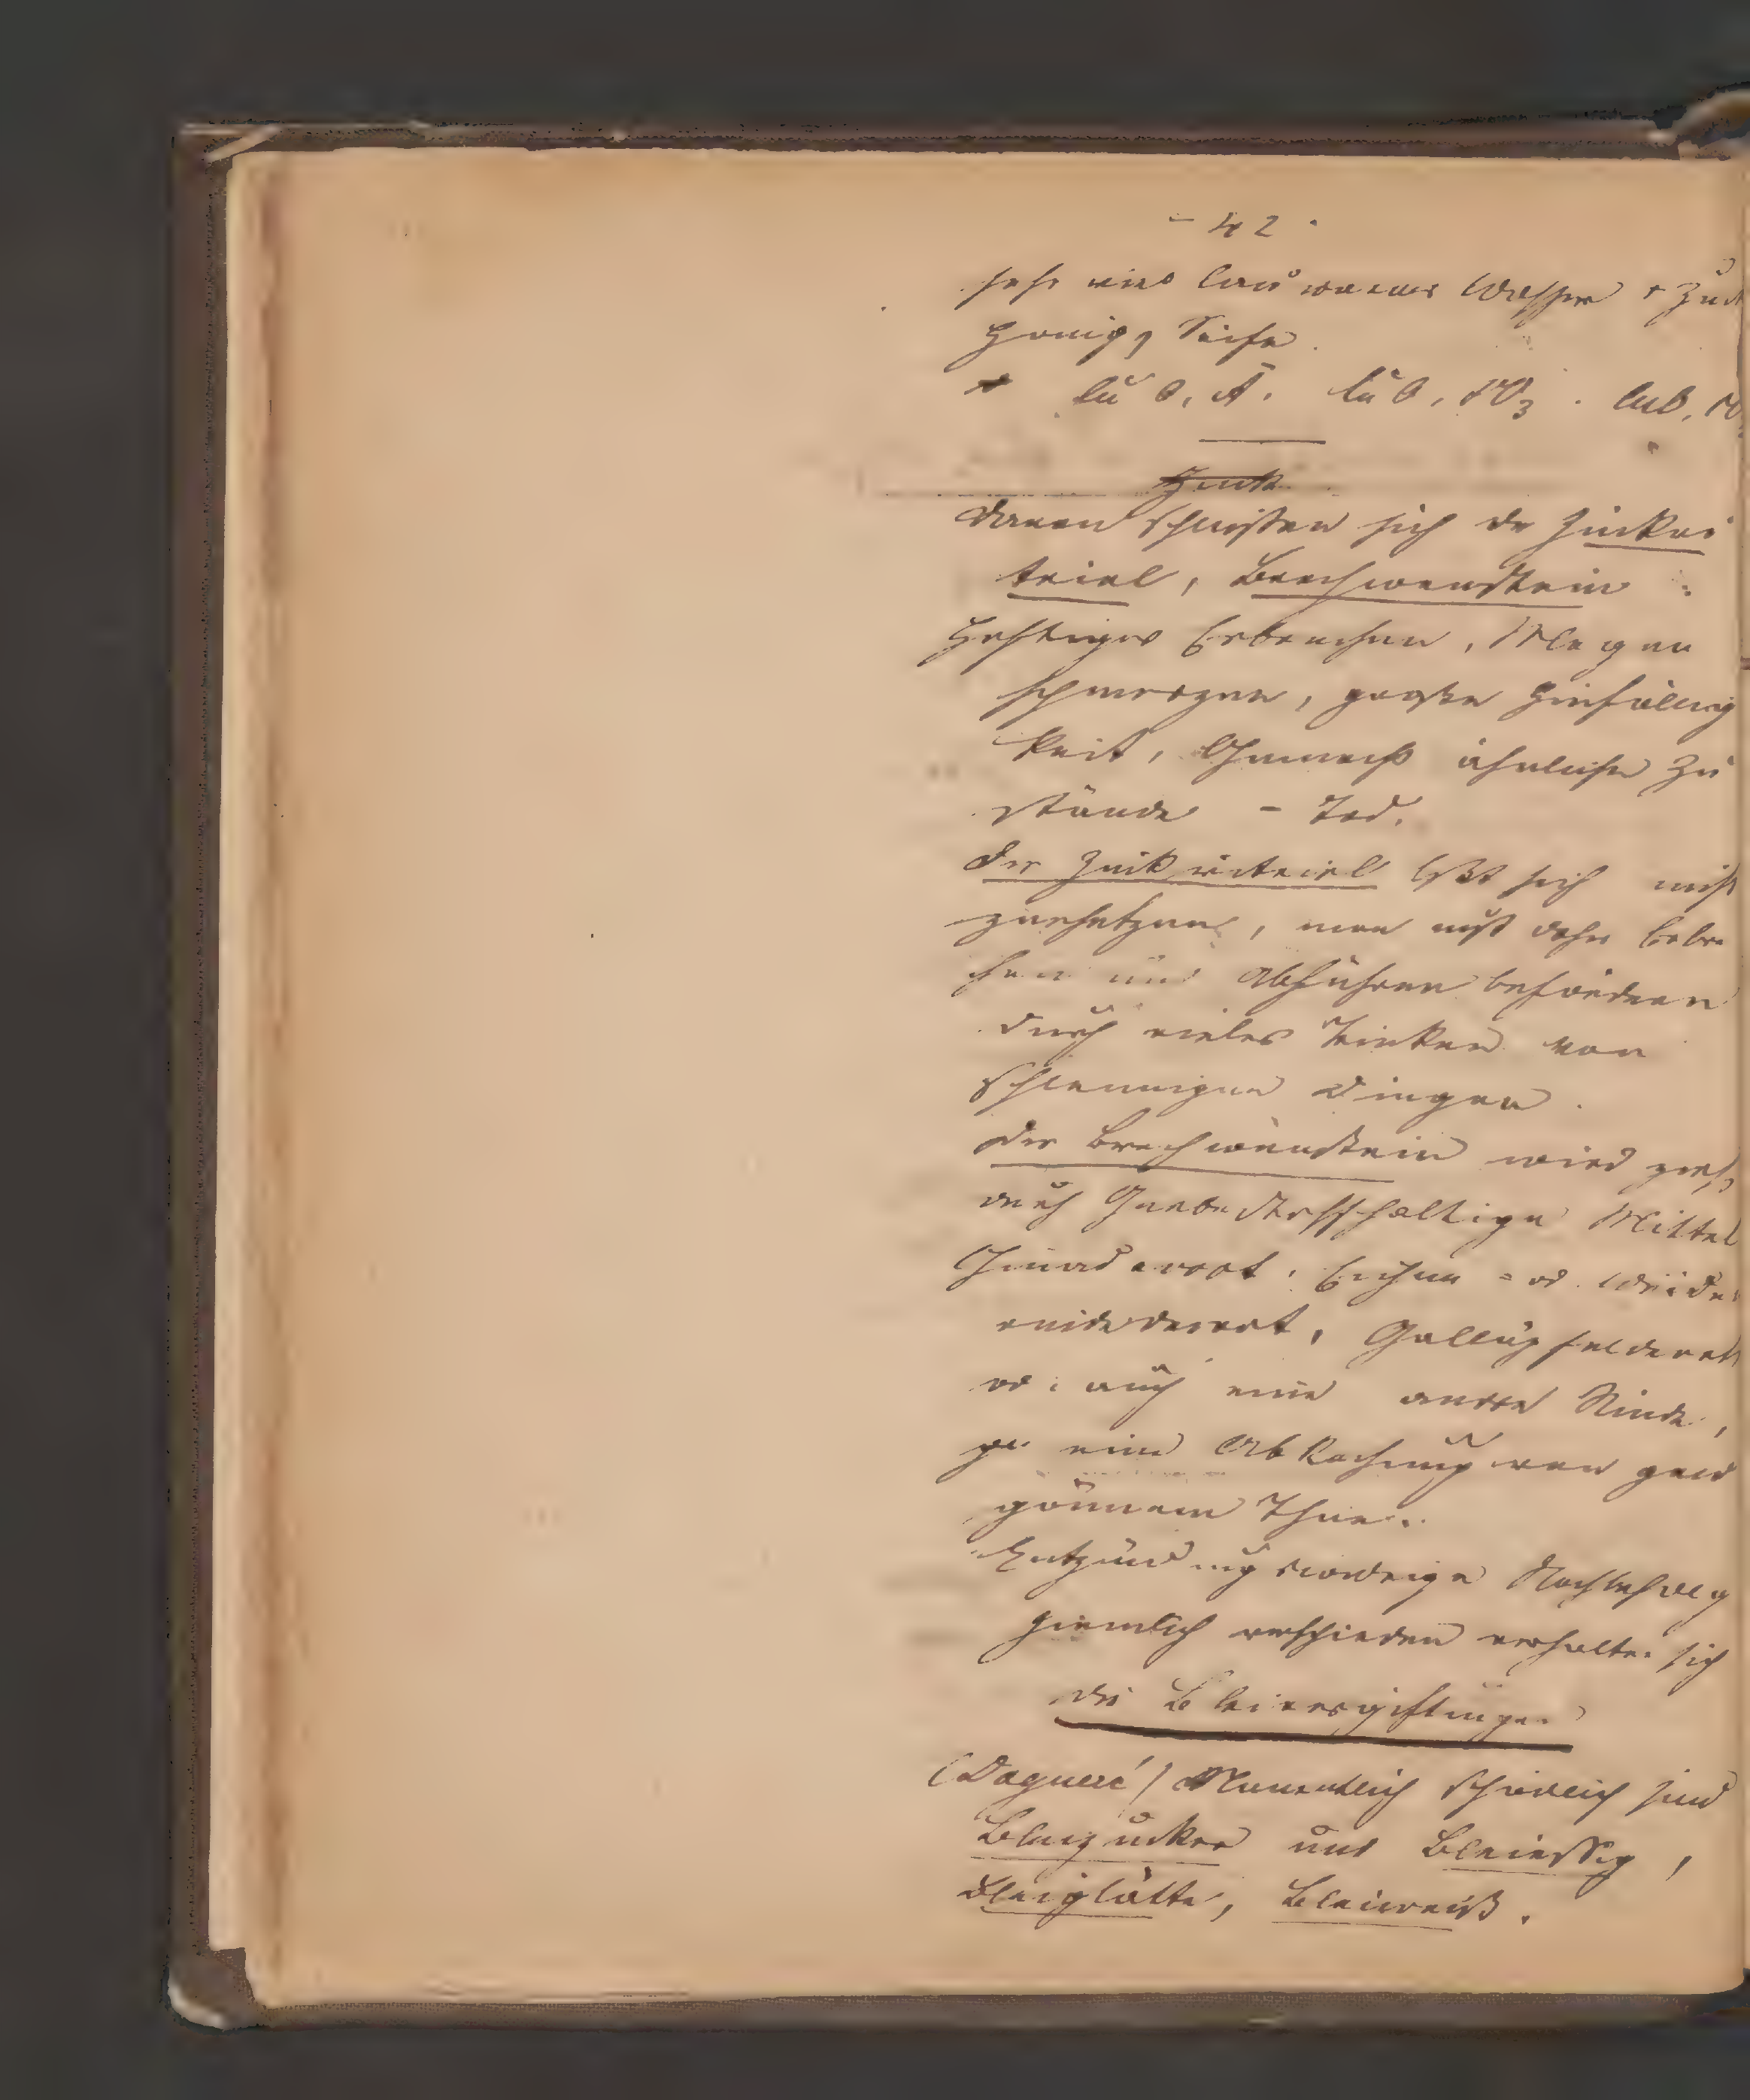 - 42 -
sehr viel lauwarmes Wasser + Zuck
Honig, Seife.
Cu O, A. Cu O, NO3. CuO,
Zink
Daran schließen sich der Zinkvi
triol, Brechweinstein:
Heftiges Erbrechen, Magen
schmerzen, große Hinfällig
keit, Ohnmacht ähnliche Zu
stände - Tod.
Der Zinkvitriol läßt sich nicht
zersetzen, man muß daher Erbre
chen und Abführen befördern
durch vieles Trinken von
schleimigen Dingen.
Der Brechweinstein wird zers
durch Gerbestoffhaltige Mittel
Chinadecoct, Eichen = od. Weiden
rindedecoct, Galläpfeldecoct
od: auch eine andre Rinde,
ja eine Abkochung von ganz
grünem Thee.
Entzündungswidrige Nachbehdlg
Ziemlich verschieden verhalten sich
die Bleivergiftungen
(Daguerré) Namentlich schädlich sind
Bleizucker und Bleiessig,
Bleiglätte, Bleiweiß.